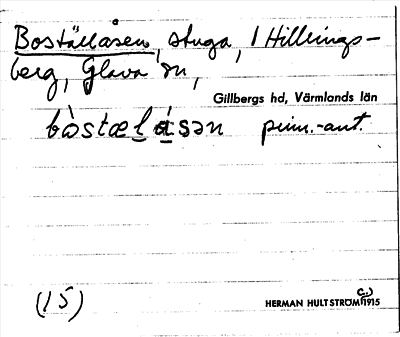 Boställåsen, stuga, 1 Hillrings-
berg, Glava sn,
Gillbergs hd, Värmlands län
bòstæl̠ a̠sən prim.-ant.
(15)
HERMAN HULTSTRÖM (?) 1915